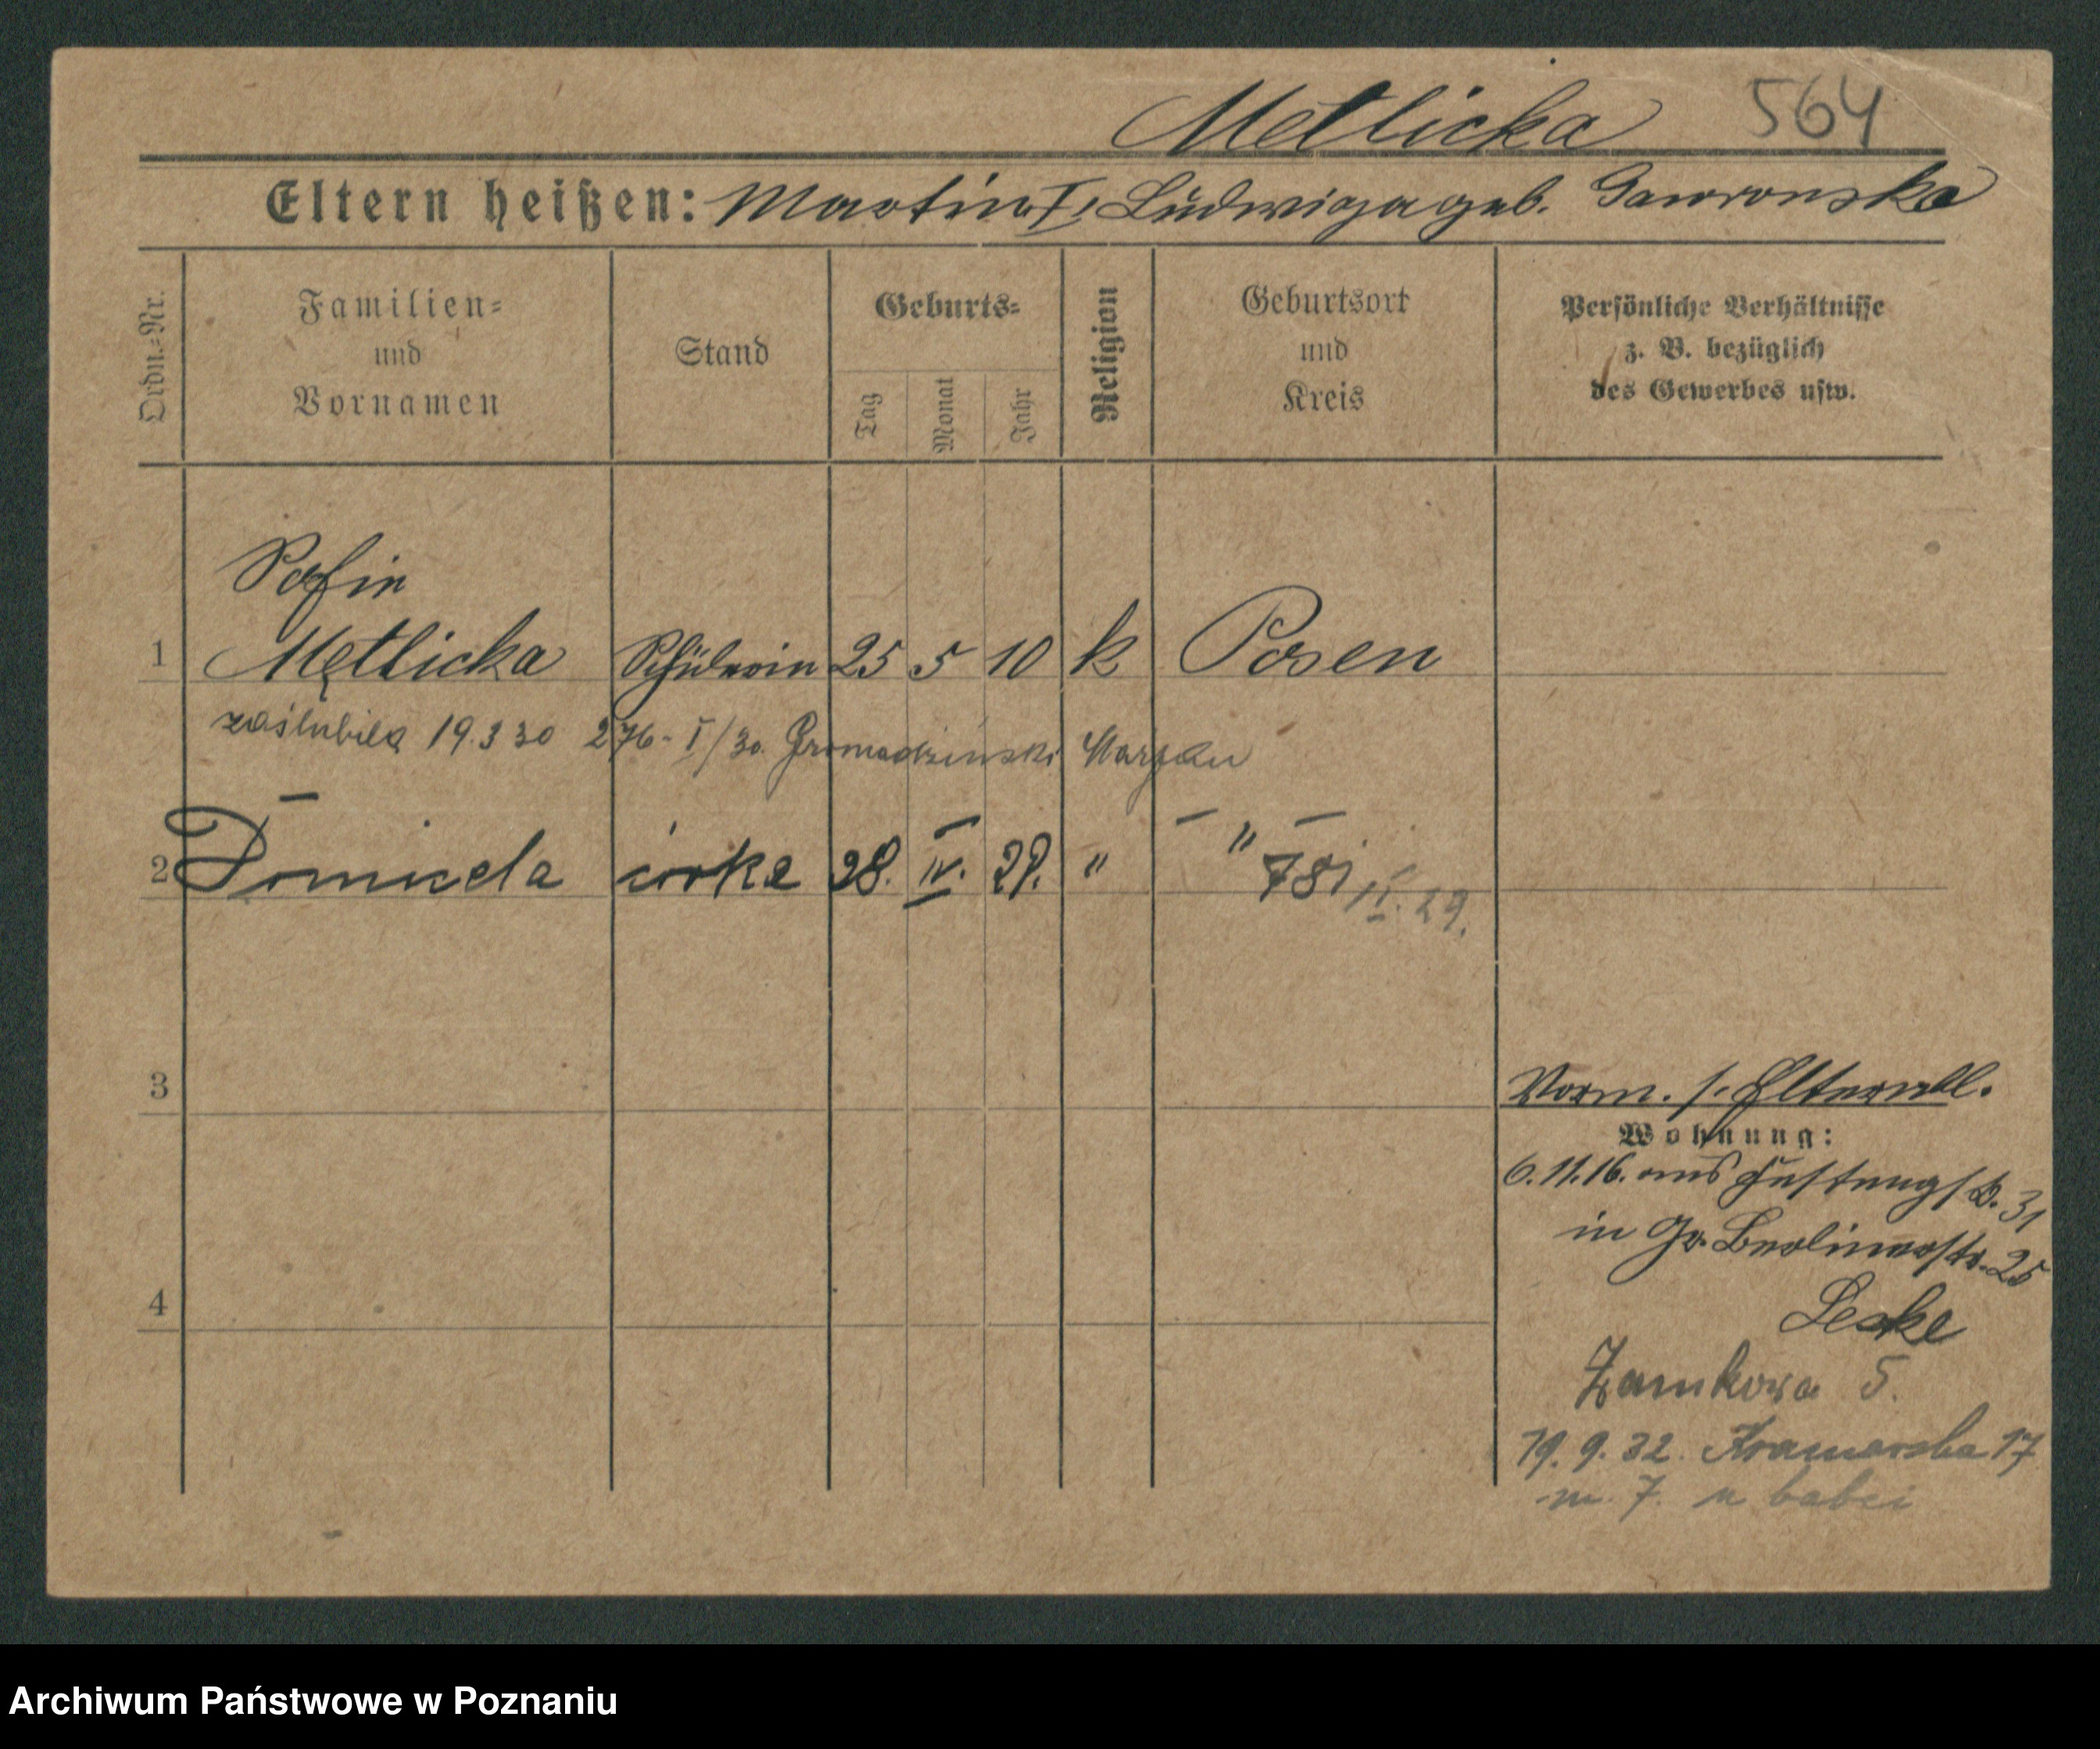 Metlicka 564
Eltern heißen: Martin †, Ludwiga geb. Gawronska
Ordn.=Nr.
Familien=
und
Vornamen
Stand
Geburts=
Tag
Monat
Jahr
Religion
Geburtsort
und
Kreis
Persönliche Verhältnisse
z. B. bezüglich
des Gewerbes usw.
Sofie
1 Mętlicka Schülerin 25 5 10 k Posen
zaślubiła 19.3 30 276-I/30. Gromadziński Marjan
2 córka 28. IV. 29. " — " —
IV. 29.
3
Vorm. s. Elternbl.
Wohnung:
6.11.16. aus Festungstr. 31
in Gr. Berlinerstr. 25
Leske
4
Zamkowa 5.
19. 9. 32. Kramarska 17
m. 7. u babci
Archiwum Państwowe w Poznaniu